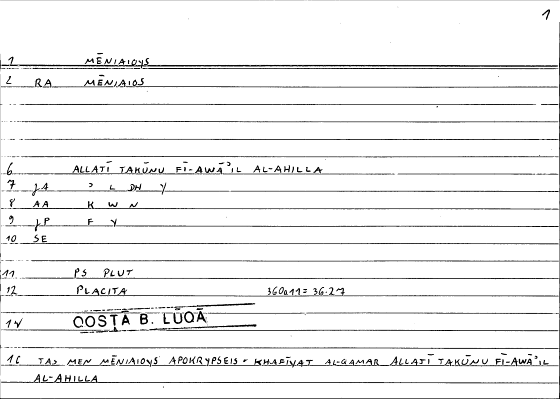 1
1 MĒNIAIOYS
2 RA MĒNIAIOS
6 ALLATĪ TAKŪNU FĪ-AWĀʾIL AL-AHILLA
7 JA ʾ L DH Y
8 AA K W N
9 JP F Y
10 SE
11 PS PLUT
12 PLACITA 360a11= 36.27
14 QOSṬĀ B. LŪQĀ
16 TAS MEN MĒNIAIOYS APOKRYPSEIS = KHAFĪYAT AL-QAMAR ALLATĪ TAKŪNU FĪ-AWĀʾIL
AL-AHILLA